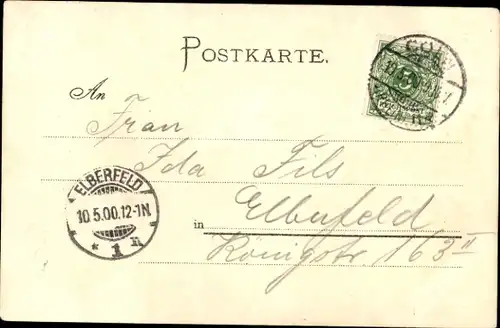 POSTKARTE.
An
Frau
Ida Fils
in Elberfeld
Königstr 163 II
ELBERFELD
10.5.00.12-1N.
* 1 n